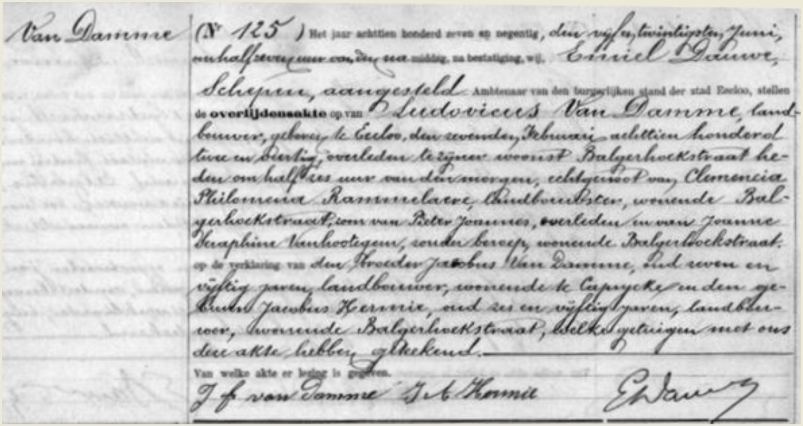 Van Damme
(Nº 125) Het jaar achttien honderd zeven en negentig, den vijfentwintigsten Juni,
om half zeven uur van den na middig, na bestatiging, wij, Emiel Dauwe,
Schepen, aangesteld Ambtenaar van den burgerlijken stand der stad Eecloo, stellen
de overlijdensakte op van Ludovicus Van Damme, land-
bouwer, geboren te Eecloo, den zevenden Februari achttien honderd
twee en veertig, overleden te zijner woonst Balgerhoekstraat he-
den om half zes uur van den morgen, echtgenoot van Clemencia
Philomena Rammelaere, landbouwster, wonende Bal-
gerhoekstraat, zoon van Pieter Joannes, overleden en van Joanne
Seraphine Vanhootegem, zonder beroep, wonende Balgerhoekstraat.
op de verklaring van den broeder Jacobus Van Damme, oud zeven en
vijftig jaren, landbouwer, wonende te Caprycke en den ge-
buur Jacobus Hermie, oud zes en vijftig jaren, landbou-
wer, wonende Balgerhoekstraat, welke getuigen met ons
deze akte hebben geteekend.
Van welke akte er lezing is gegeven.
J f van Damme J A Hermie EDauwe